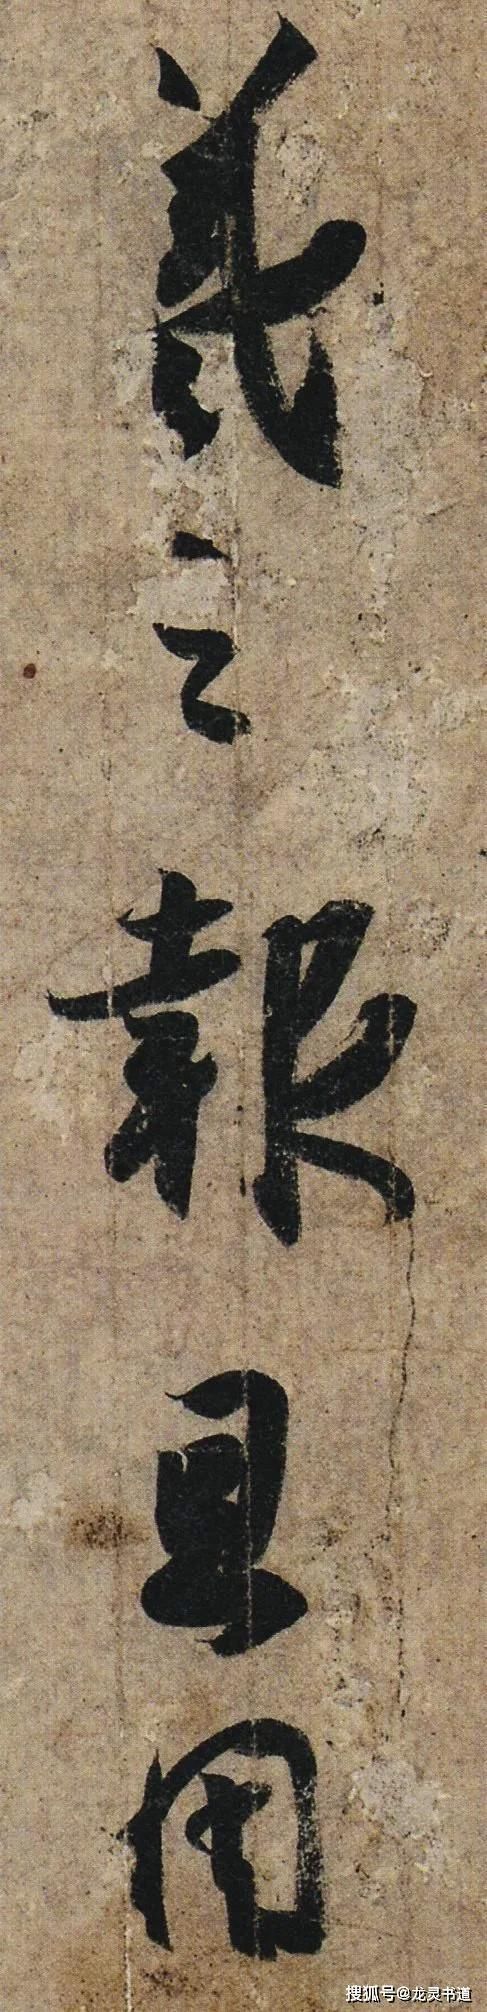 羲之報且因
搜狐号@龙灵书道